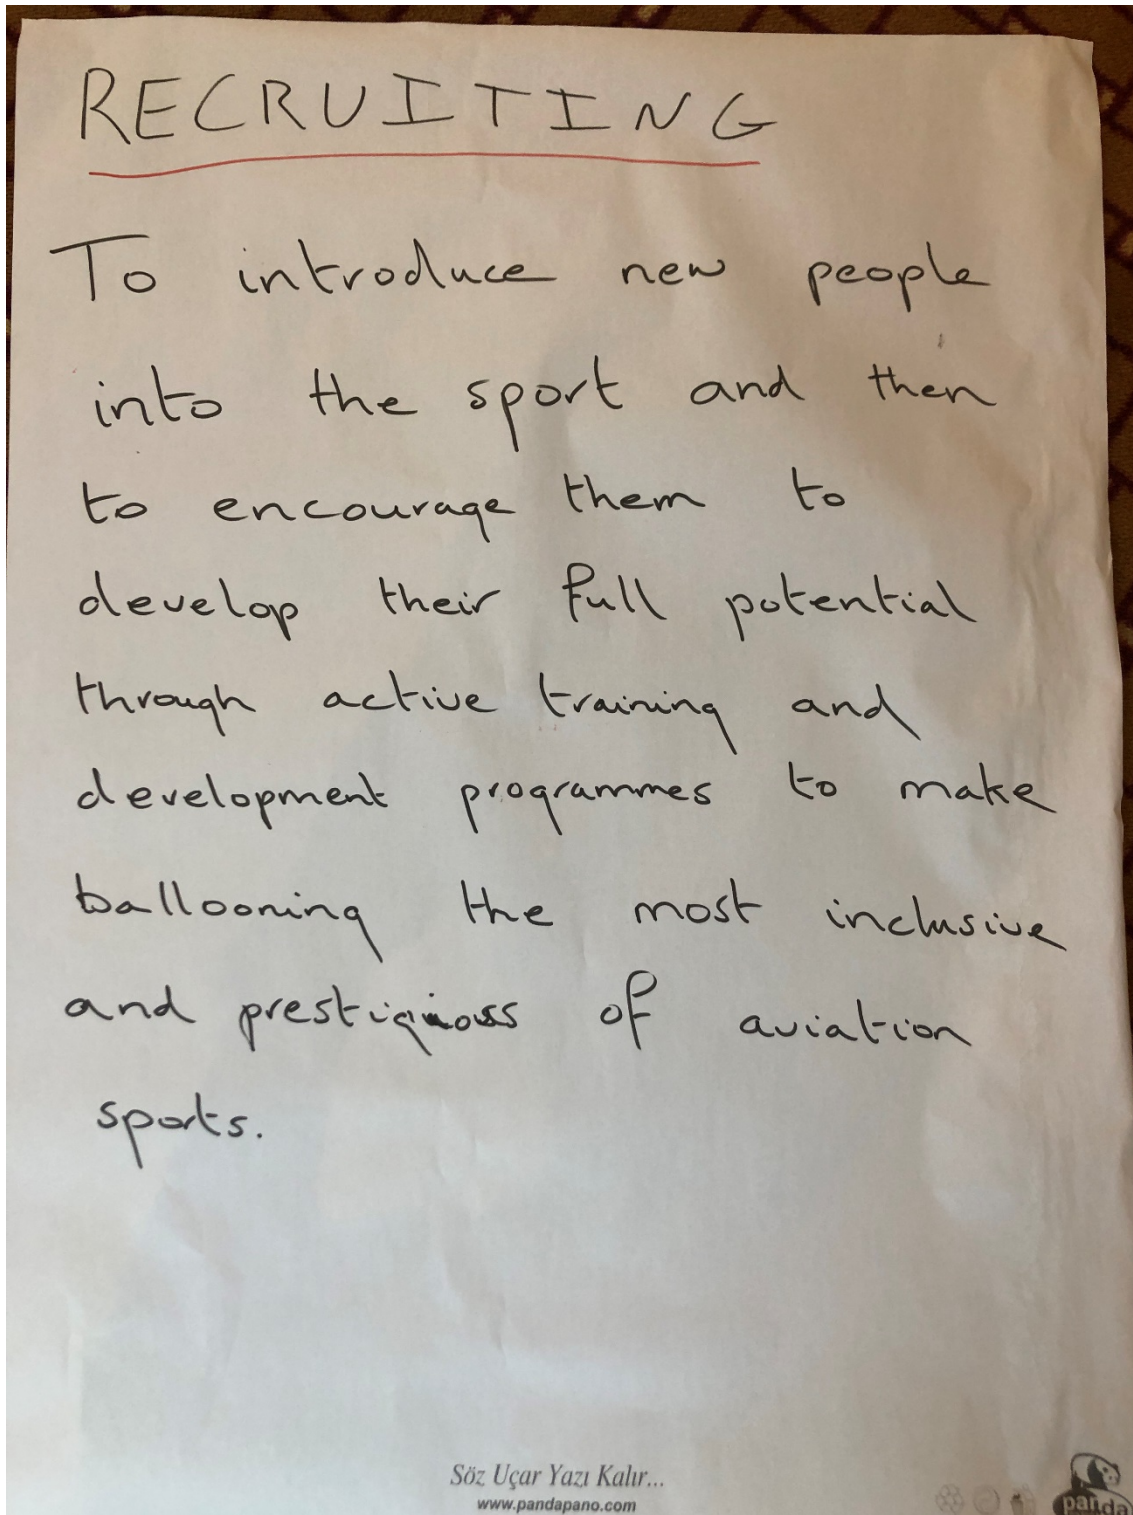 RECRUITING
To introduce new people
into the sport and then
to encourage them to
develop their full potential
through active training and
development programmes to make
ballooning the most inclusive
and prestigious of aviation
sports.
Söz Uçar Yazı Kalır...
www.pandapano.com
panda